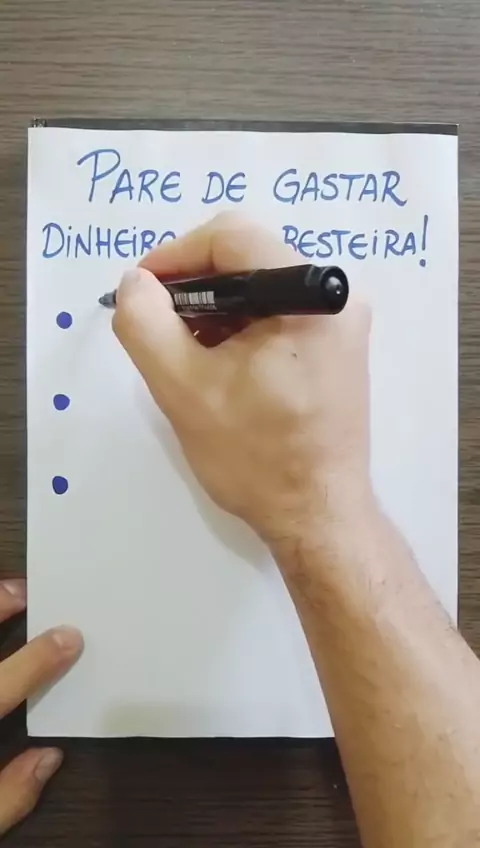 PARE DE GASTAR
DINHEIRO BESTEIRA!